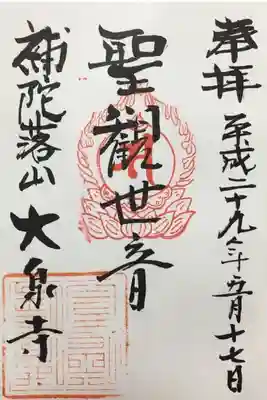 奉拝 平成二十九年五月十七日
聖観世音
補陀落山 大泉寺